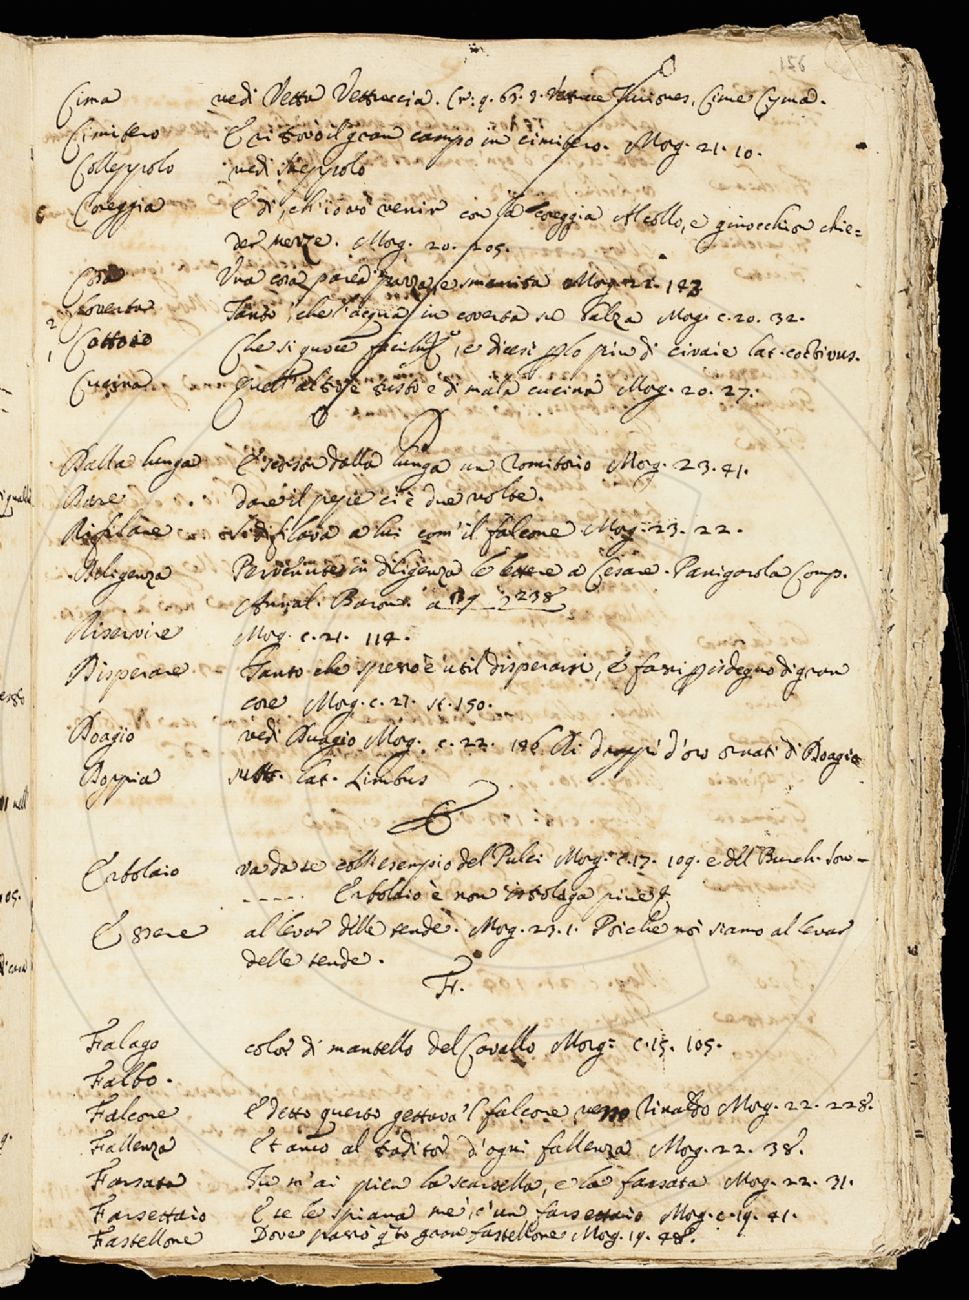 156
Cima vedi Vetta Vettuccia. Cr: 9. 63. 3. Iuniores. Cime Cyma.
Cimitero E ritrovò il gran campo in cimitero. Morg. 21. 10.
Colleppolo vedi Steppolo
Coreggia E dì, ch'io vò venir con la coreggia Al collo, e ginocchion chie=
der merze. Morg. 20. 105.
Cosa Una cosa parea pazza, e smarrita Morg. 22. 142
Coverta Tanto, che l'acqua in coverta su balza Morg. c. 20. 32.
Cottoio Che si quoce facilm.e, e dicesi p lo piu di civaie lat. coctivus.
Cucina Quell'altro è tristo e di mala cucina Morg. 20. 27.
D
Dalla lunga E scorson dalla lunga un Romitorio Morg. 23. 41.
Dare dare il pepe ci è due volte.
Difilare si difilava a lui com'il falcone Morg. 23. 22.
Diligenza Pervenute in diligenza le lettere a Cesare. Panigarola Comp.
Annal. Baron. a 238
Diservire Morg. c. 21. 114.
Disperare Tanto che spesso è util disperarsi, E farsi p isdegno di gran
core Morg. c. 21. st. 150.
Doagio vedi Duagio Morg. c. 22. 186 Di drappi d'oro ornati di Doagio
Doppia veste. lat. Limbus
E
Erbolaio va da se coll'esempio del Pulci Morg. c. 17. 109. e del Burch. Son-
- - - - - Erbolaio è non istolaga piue
Essere al levar delle tende. Morg. 23. 1. Poi che noi siamo al levar
delle tende.
F.
Falago color di mantello del Cavallo Morg: c. 15. 105.
Falbo.
Falcone E detto questo gettava 'l falcone verso Rinaldo Morg. 22. 228.
Fallenza Et anco al traditor d'ogni fallenza Morg. 22. 38.
Farsata Tu m'ai pien la scarsella, e la farsata Morg. 22. 31.
Farsettaio E se le spiana me, c'un farsettaio Morg. c. 19. 41.
Fastellone Dove passò q.to gran fastellone Morg. 19. 48.